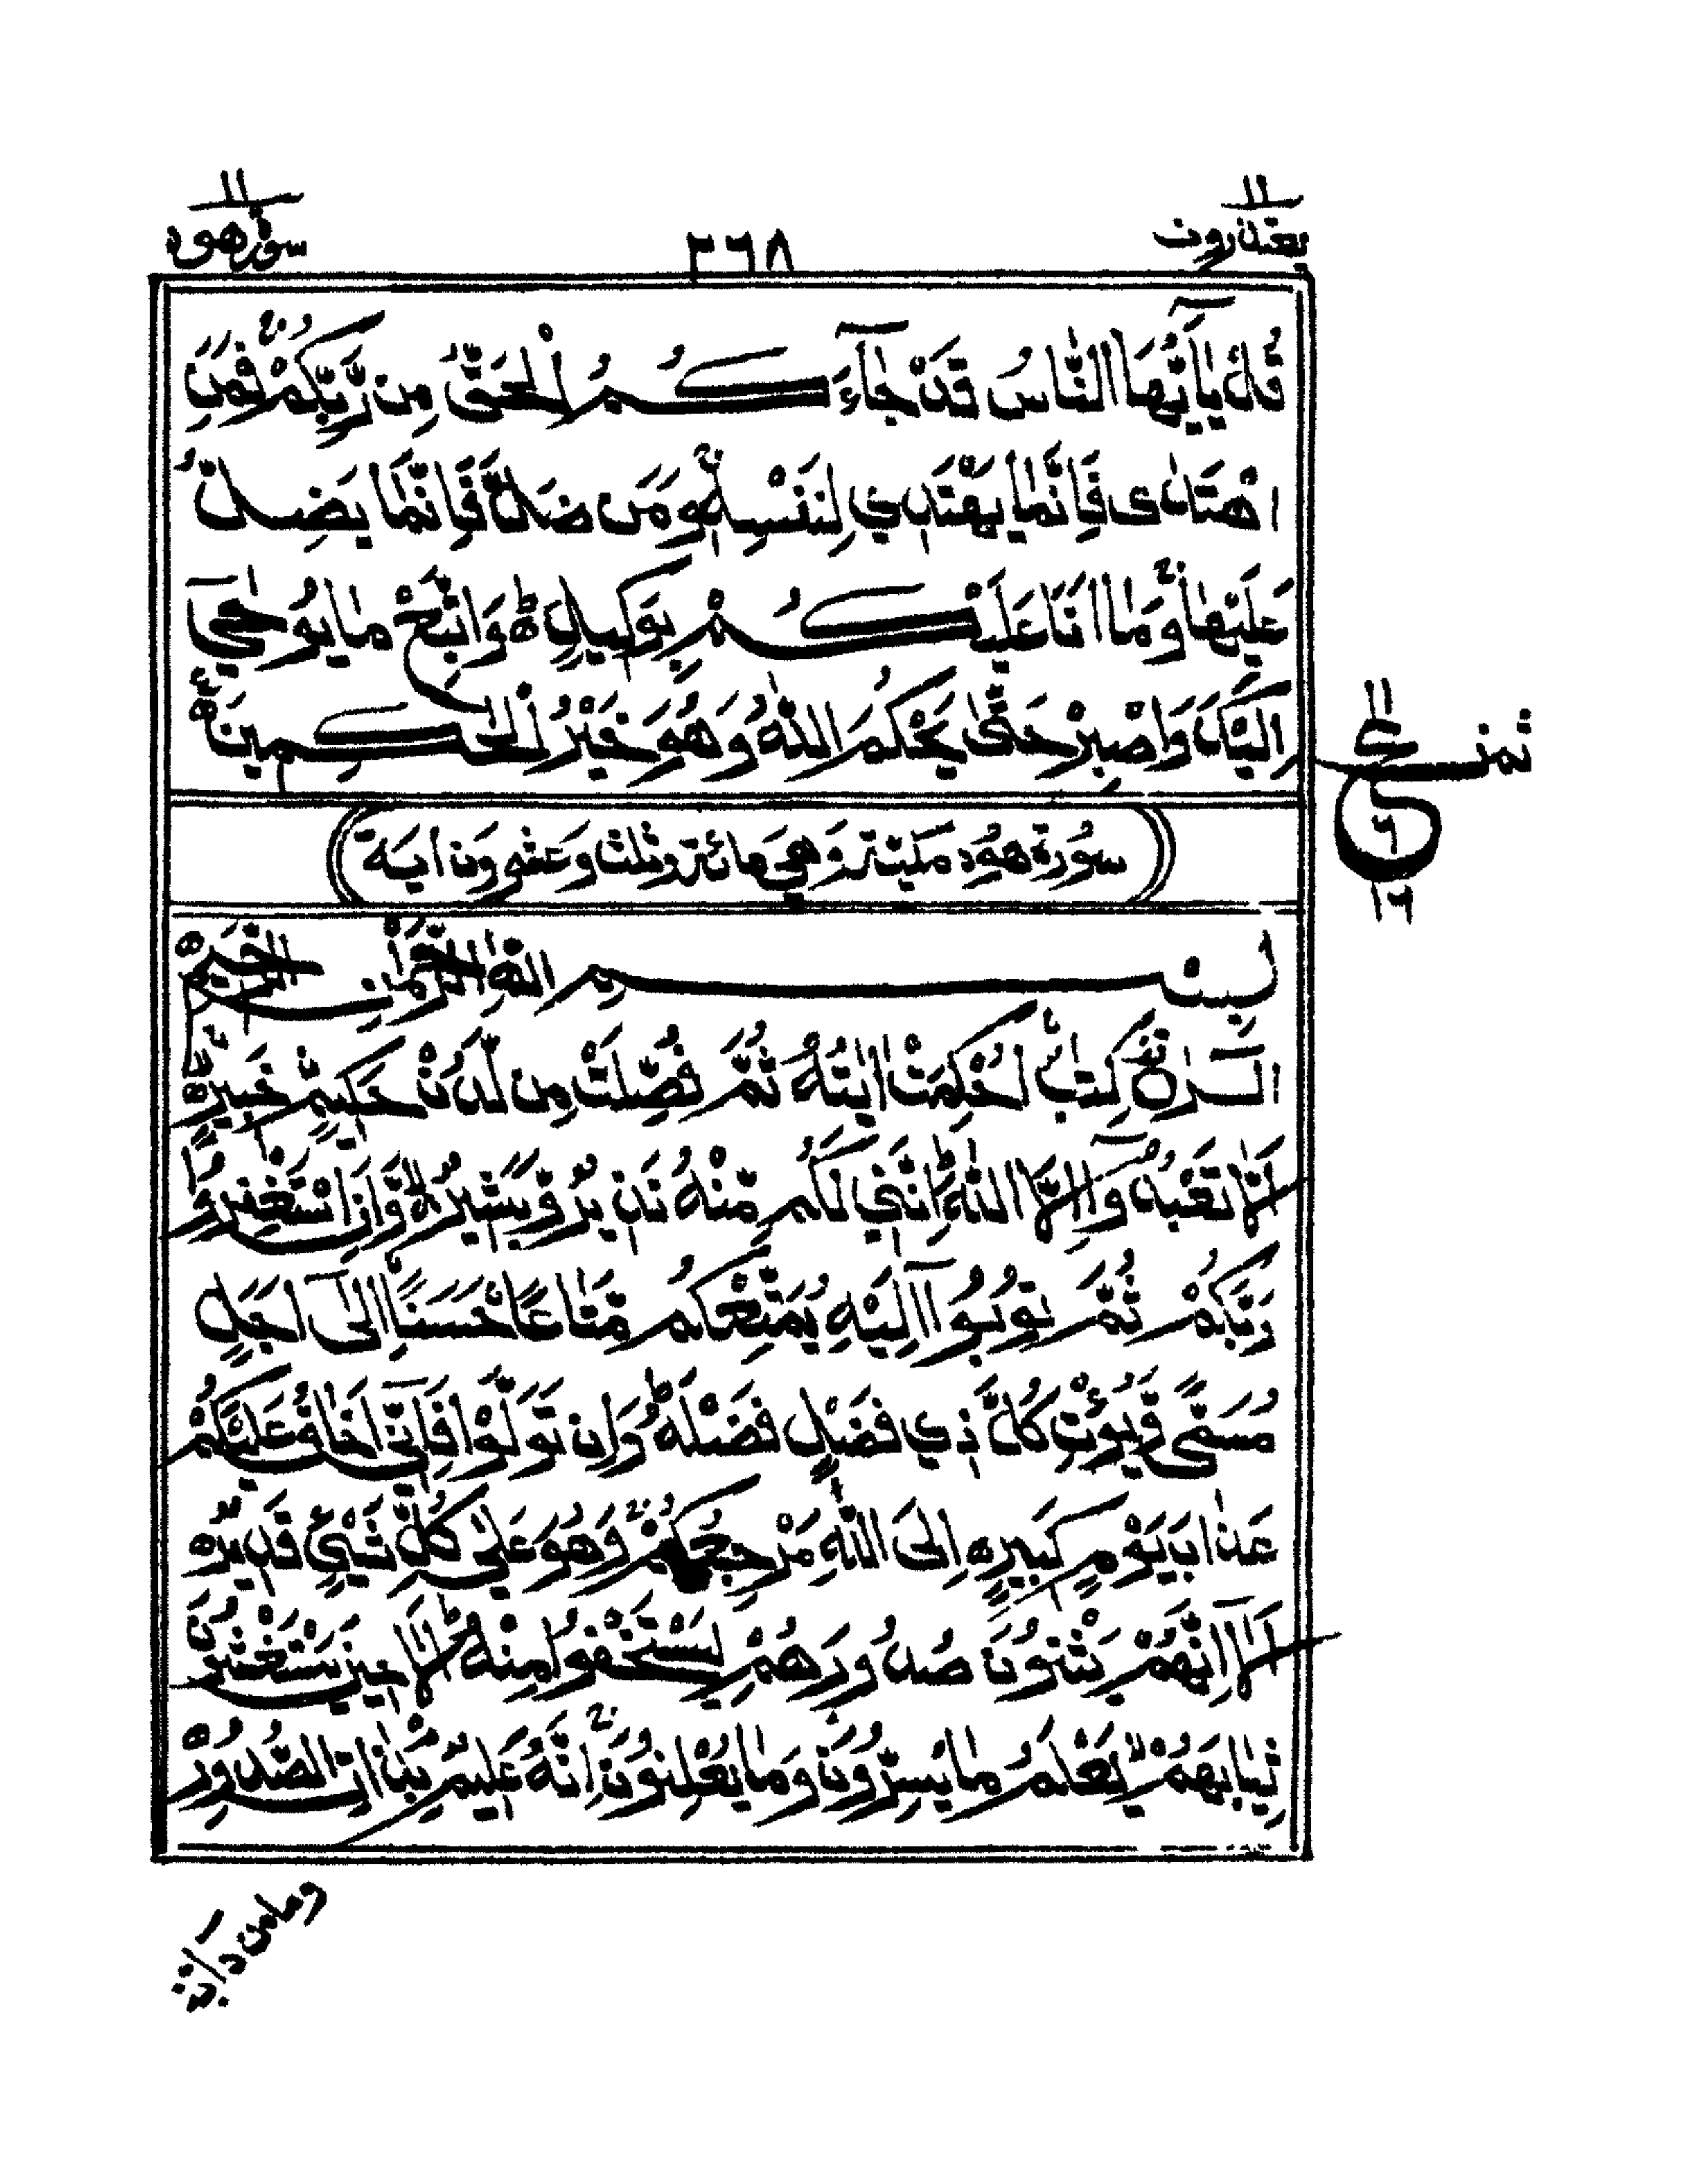 يعتذرون ١١
٢٦٨
سورة هود ١١
قُلْ يٰٓاَيُّهَا النَّاسُ قَدْ جَآءَكُمُ الْحَقُّ مِنْ رَّبِّكُمْ ۚ فَمَنِ
اهْتَدٰى فَاِنَّمَا يَهْتَدِيْ لِنَفْسِهٖ ۚ وَمَنْ ضَلَّ فَاِنَّمَا يَضِلُّ
عَلَيْهَا ۚ وَمَا اَنَا عَلَيْكُمْ بِوَكِيْلٍ ؕ وَاتَّبِعْ مَا يُوْحٰٓى
اِلَيْكَ وَاصْبِرْ حَتّٰى يَحْكُمَ اللّٰهُ وَهُوَ خَيْرُ الْحٰكِمِيْنَ
ثمن
ع
١١
٦
١٦
سُوْرَة هُوْد مكيّة وَهِيَ مائة وثلث وَعشرون اٰيَة
بِسْمِ اللّٰهِ الرَّحْمٰنِ الرَّحِيْمِ
الٓرٰ كِتٰبٌ اُحْكِمَتْ اٰيٰتُهٗ ثُمَّ فُصِّلَتْ مِنْ لَّدُنْ حَكِيْمٍ خَبِيْرٍ
اَلَّا تَعْبُدُوْٓا اِلَّا اللّٰهَ ؕ اِنَّنِيْ لَكُمْ مِّنْهُ نَذِيْرٌ وَّبَشِيْرٌ ۙ وَّاَنِ اسْتَغْفِرُوْا
رَبَّكُمْ ثُمَّ تُوْبُوْٓا اِلَيْهِ يُمَتِّعْكُمْ مَّتَاعًا حَسَنًا اِلٰٓى اَجَلٍ
مُّسَمًّى وَّيُؤْتِ كُلَّ ذِيْ فَضْلٍ فَضْلَهٗ ؕ وَاِنْ تَوَلَّوْا فَاِنِّيْٓ اَخَافُ عَلَيْكُمْ
عَذَابَ يَوْمٍ كَبِيْرٍ ه اِلَى اللّٰهِ مَرْجِعُكُمْ ۚ وَهُوَ عَلٰى كُلِّ شَيْءٍ قَدِيْرٌ ه
اَلَآ اِنَّهُمْ يَثْنُوْنَ صُدُوْرَهُمْ لِيَسْتَخْفُوْا مِنْهُ ؕ اَلَا حِيْنَ يَسْتَغْشُوْنَ
ثِيَابَهُمْ ۙ يَعْلَمُ مَا يُسِرُّوْنَ وَمَا يُعْلِنُوْنَ ۚ اِنَّهٗ عَلِيْمٌ بِذَاتِ الصُّدُوْرِ ه
وما من دابة